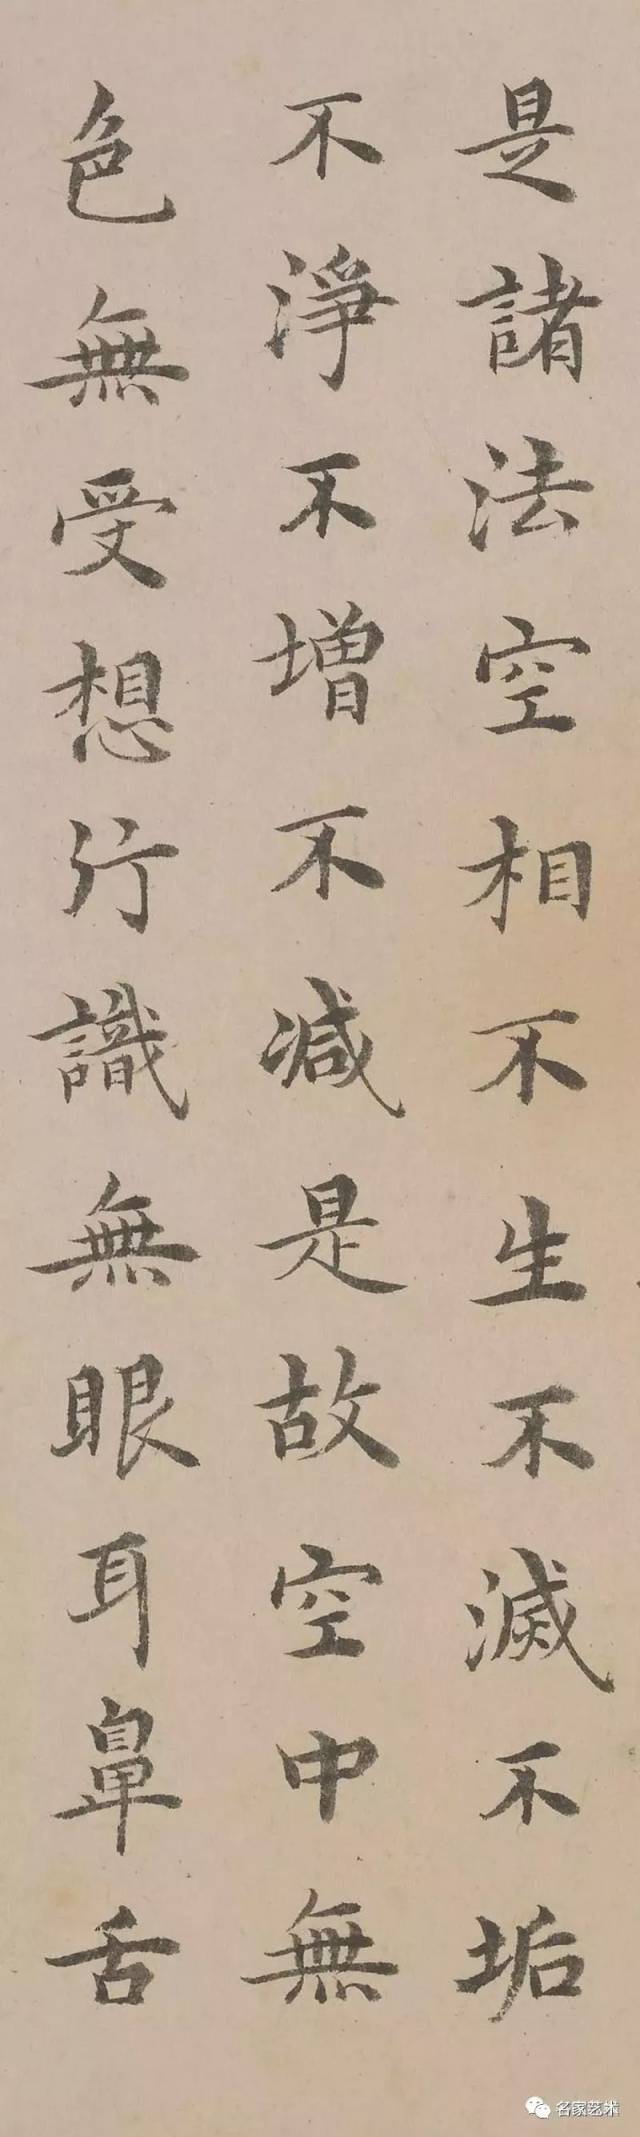 是諸法空相不生不滅不垢
不淨不增不減是故空中無
色無受想行識無眼耳鼻舌
名家艺术